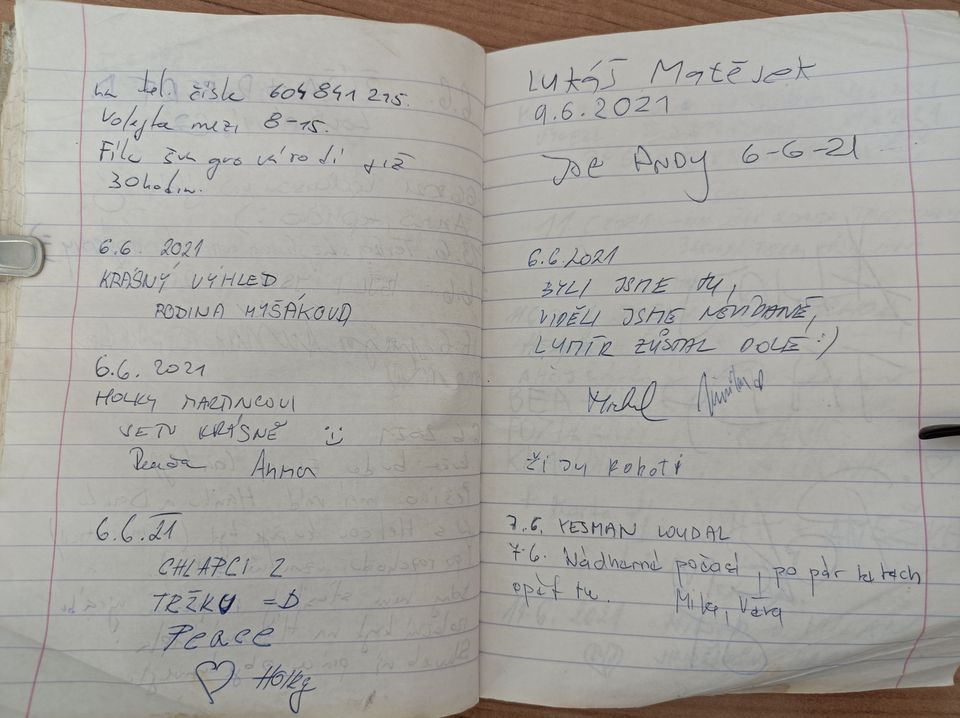 na tel. čísle 604 841 215.
Volejte mezi 8-15.
již
30 hodin.
6.6. 2021
KRÁSNÝ VÝHLED
RODINA MYŠÁKOVÁ
6.6. 2021
HOLKY MARTINCOVI
JE TU KRÁSNĚ :)
Anna
6.6.21
CHLAPCI Z
TRŽKU =D
Peace
♡ Holky
LUKÁŠ Matěsek
9.6.2021
JOE ANDY 6-6-21
6.6.2021
BYLI JSME TU,
VIDĚLI JSME NEVÍDANĚ,
LUMÍR ZŮSTAL DOLE :)
Michal
Ži Ju roboti
7.6. YESMAN LOUDAL
7.6. Nádherné počasí, po pár letech
opět tu. Mila, Věra